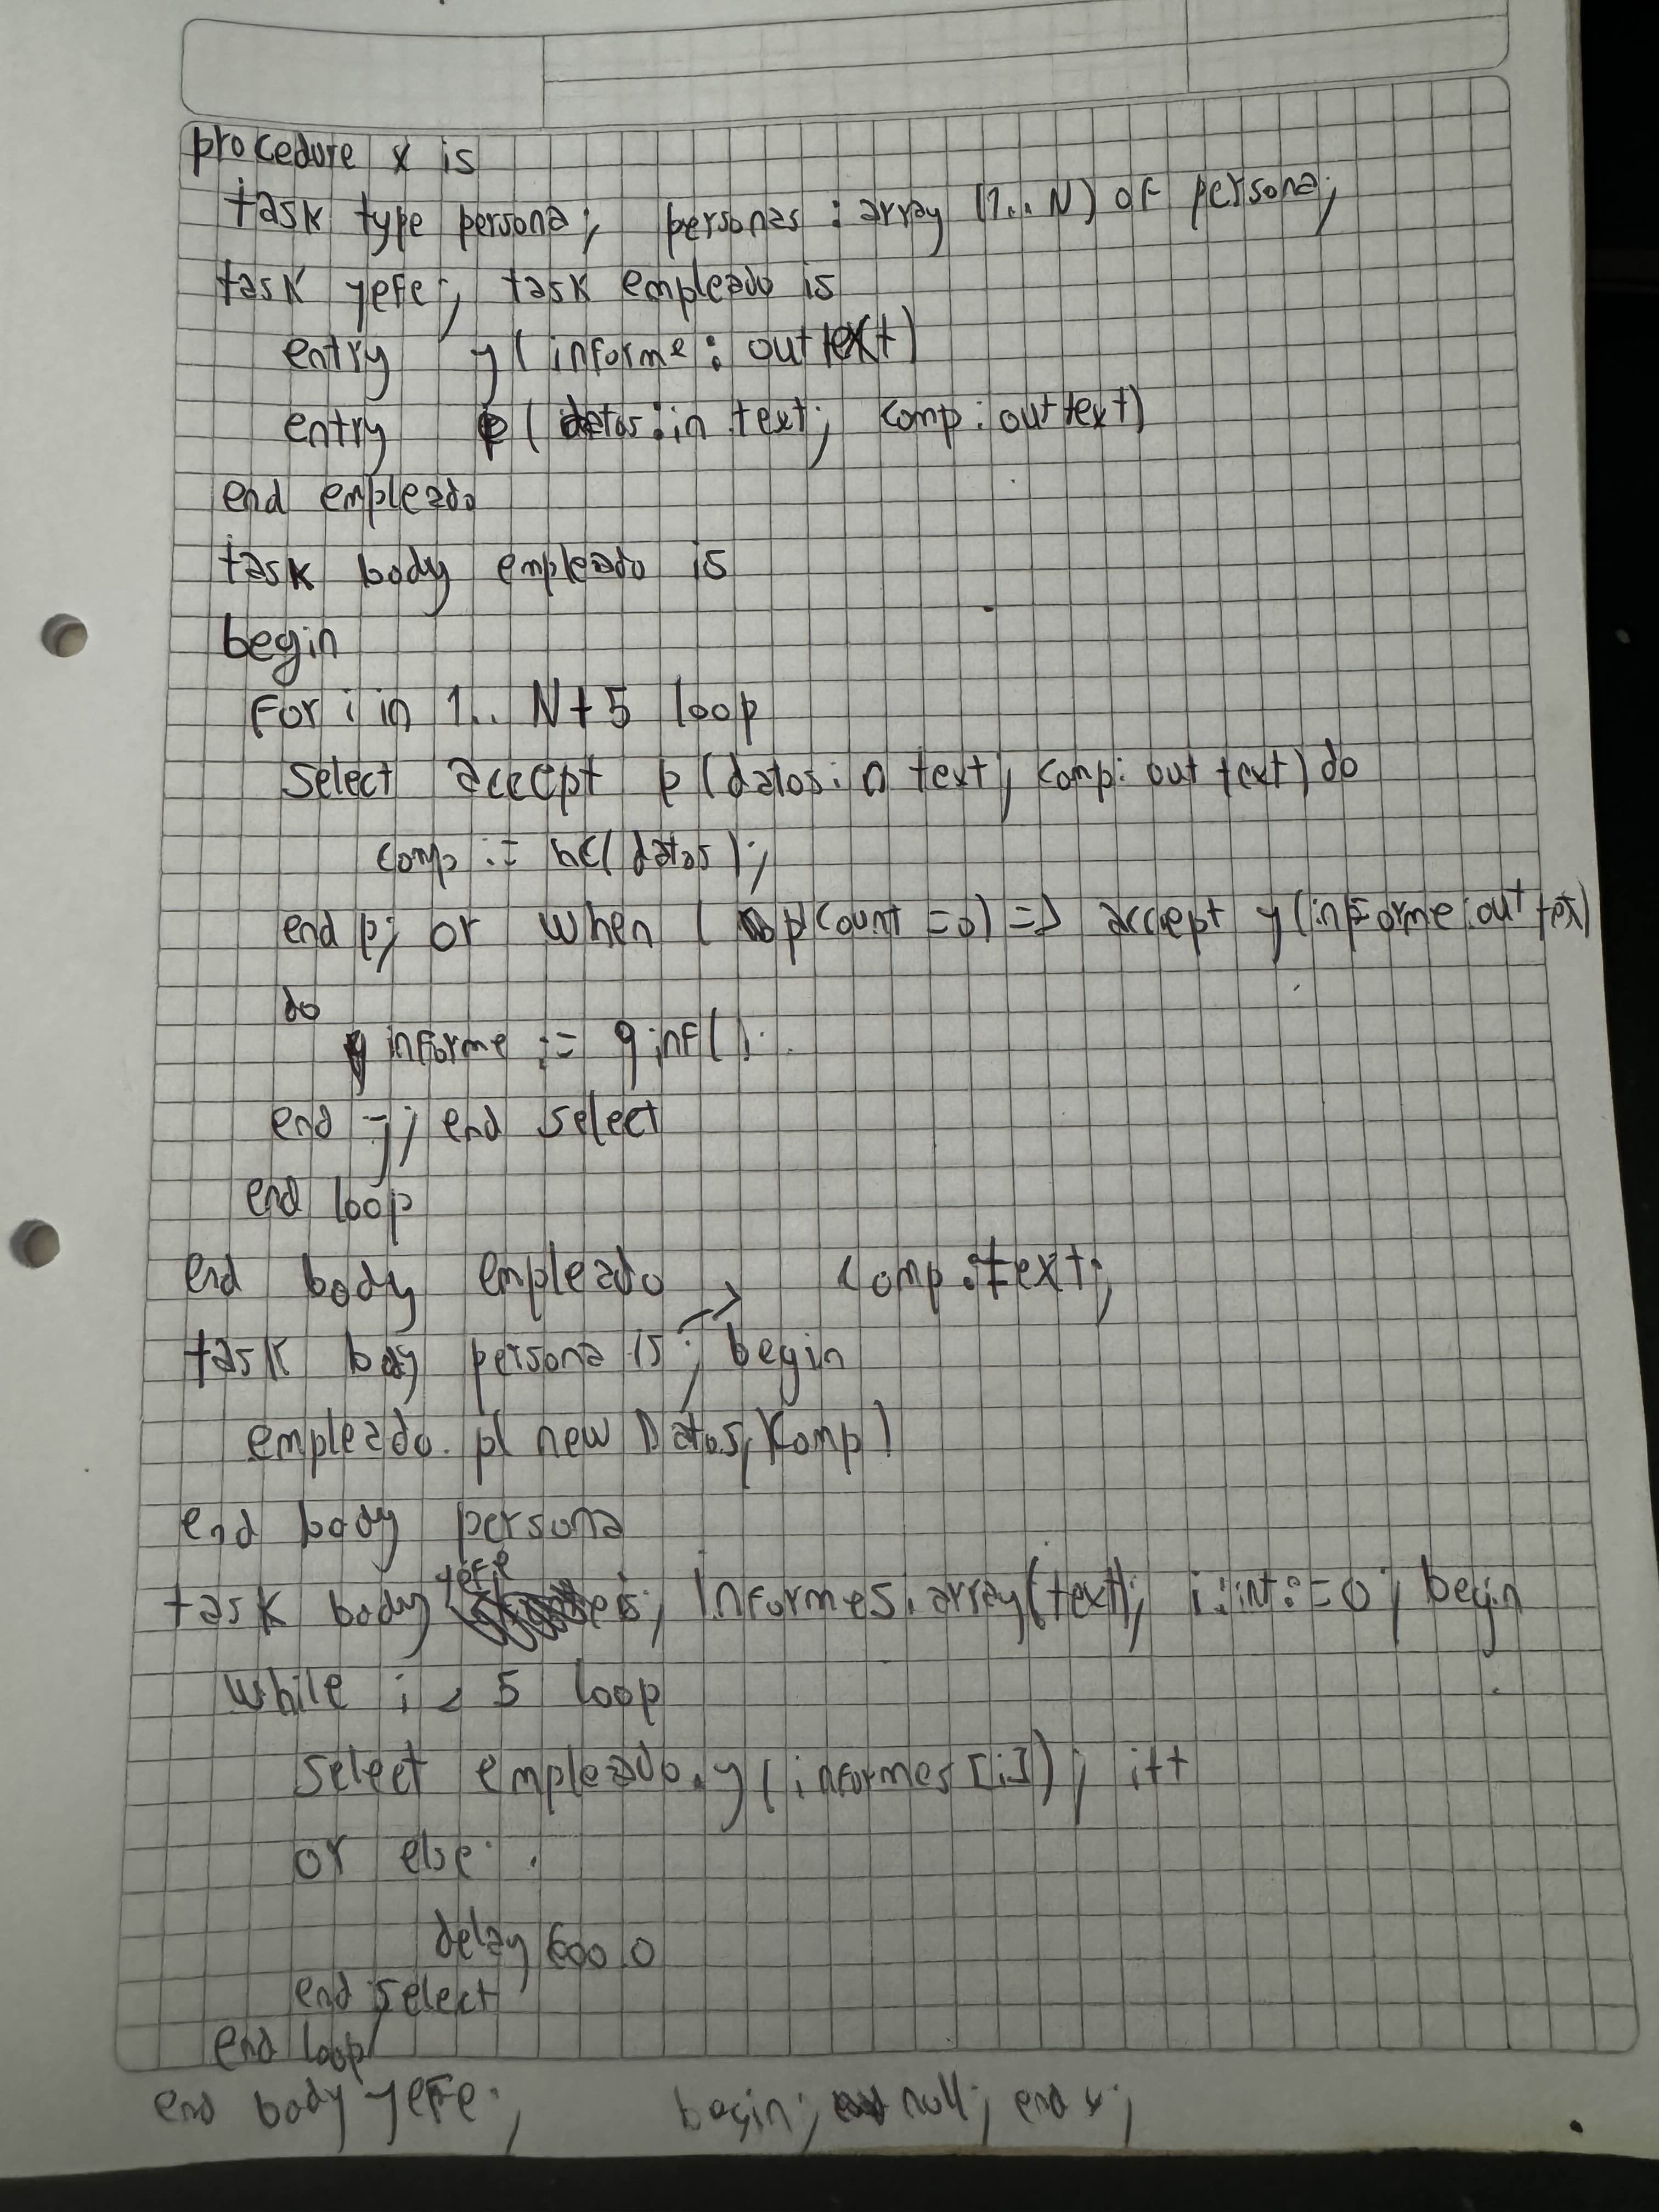 procedure x is
task type persona; personas : array (1.. N) of persona;
task yefe; task empleado is
entry y( informe : out text)
entry p( datos : in text; comp : out text)
end empleado
task body empleado is
begin
for i in 1.. N+5 loop
select accept p (datos: in text; comp: out text) do
comp := hc(datos);
end p; or when ( p count =0) => accept y(informe : out text)
do
informe := ginf();
end y; end select
end loop
end body empleado
comp : text;
task body persona is; begin
empleado. p( new Datos, comp)
end body persona
task body yefe is; Informes: array(text); i : int := 0; begin
while i < 5 loop
select empleado.y(informes [i]); i++
or else
delay 600.0
end select
end loop
end body yefe; begin; null; end x;